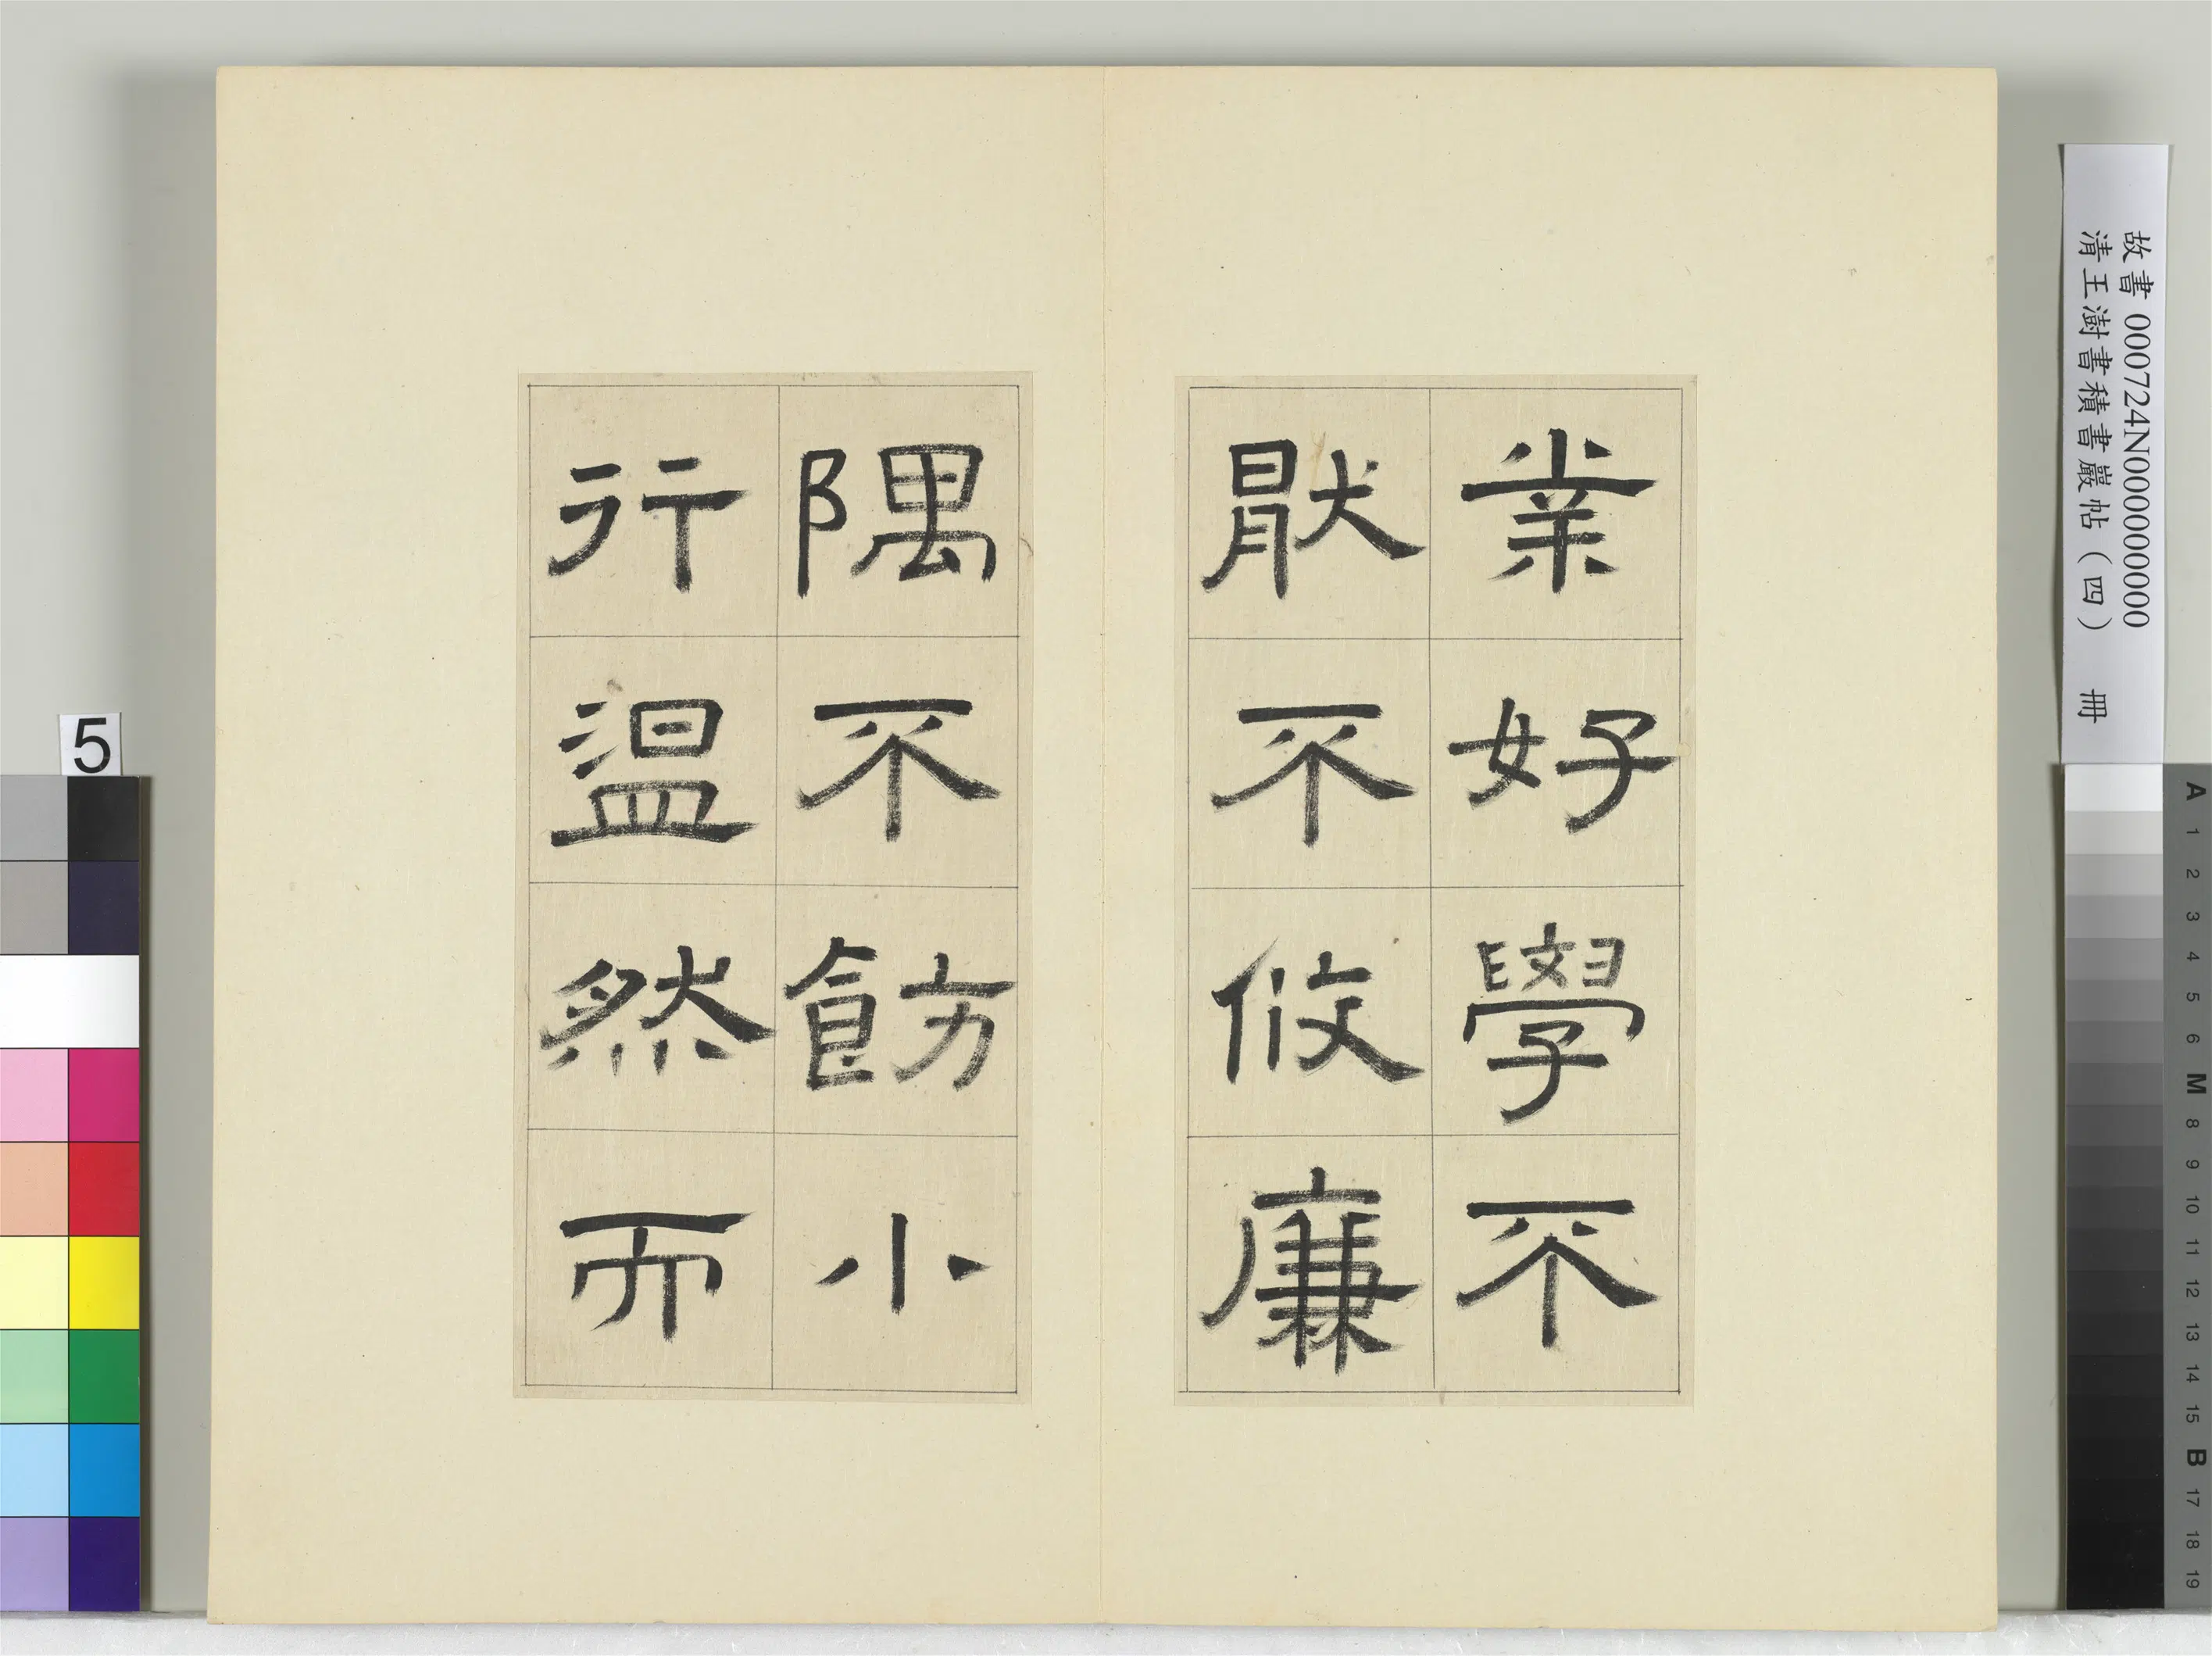 業好學不
猒不攸廉
隅不飭小
行溫然而
故書 000724N000000000
清王澍書積書巖帖(四) 冊
5
A
1
2
3
4
5
6
M
8
9
10
11
12
13
14
15
B
17
18
19